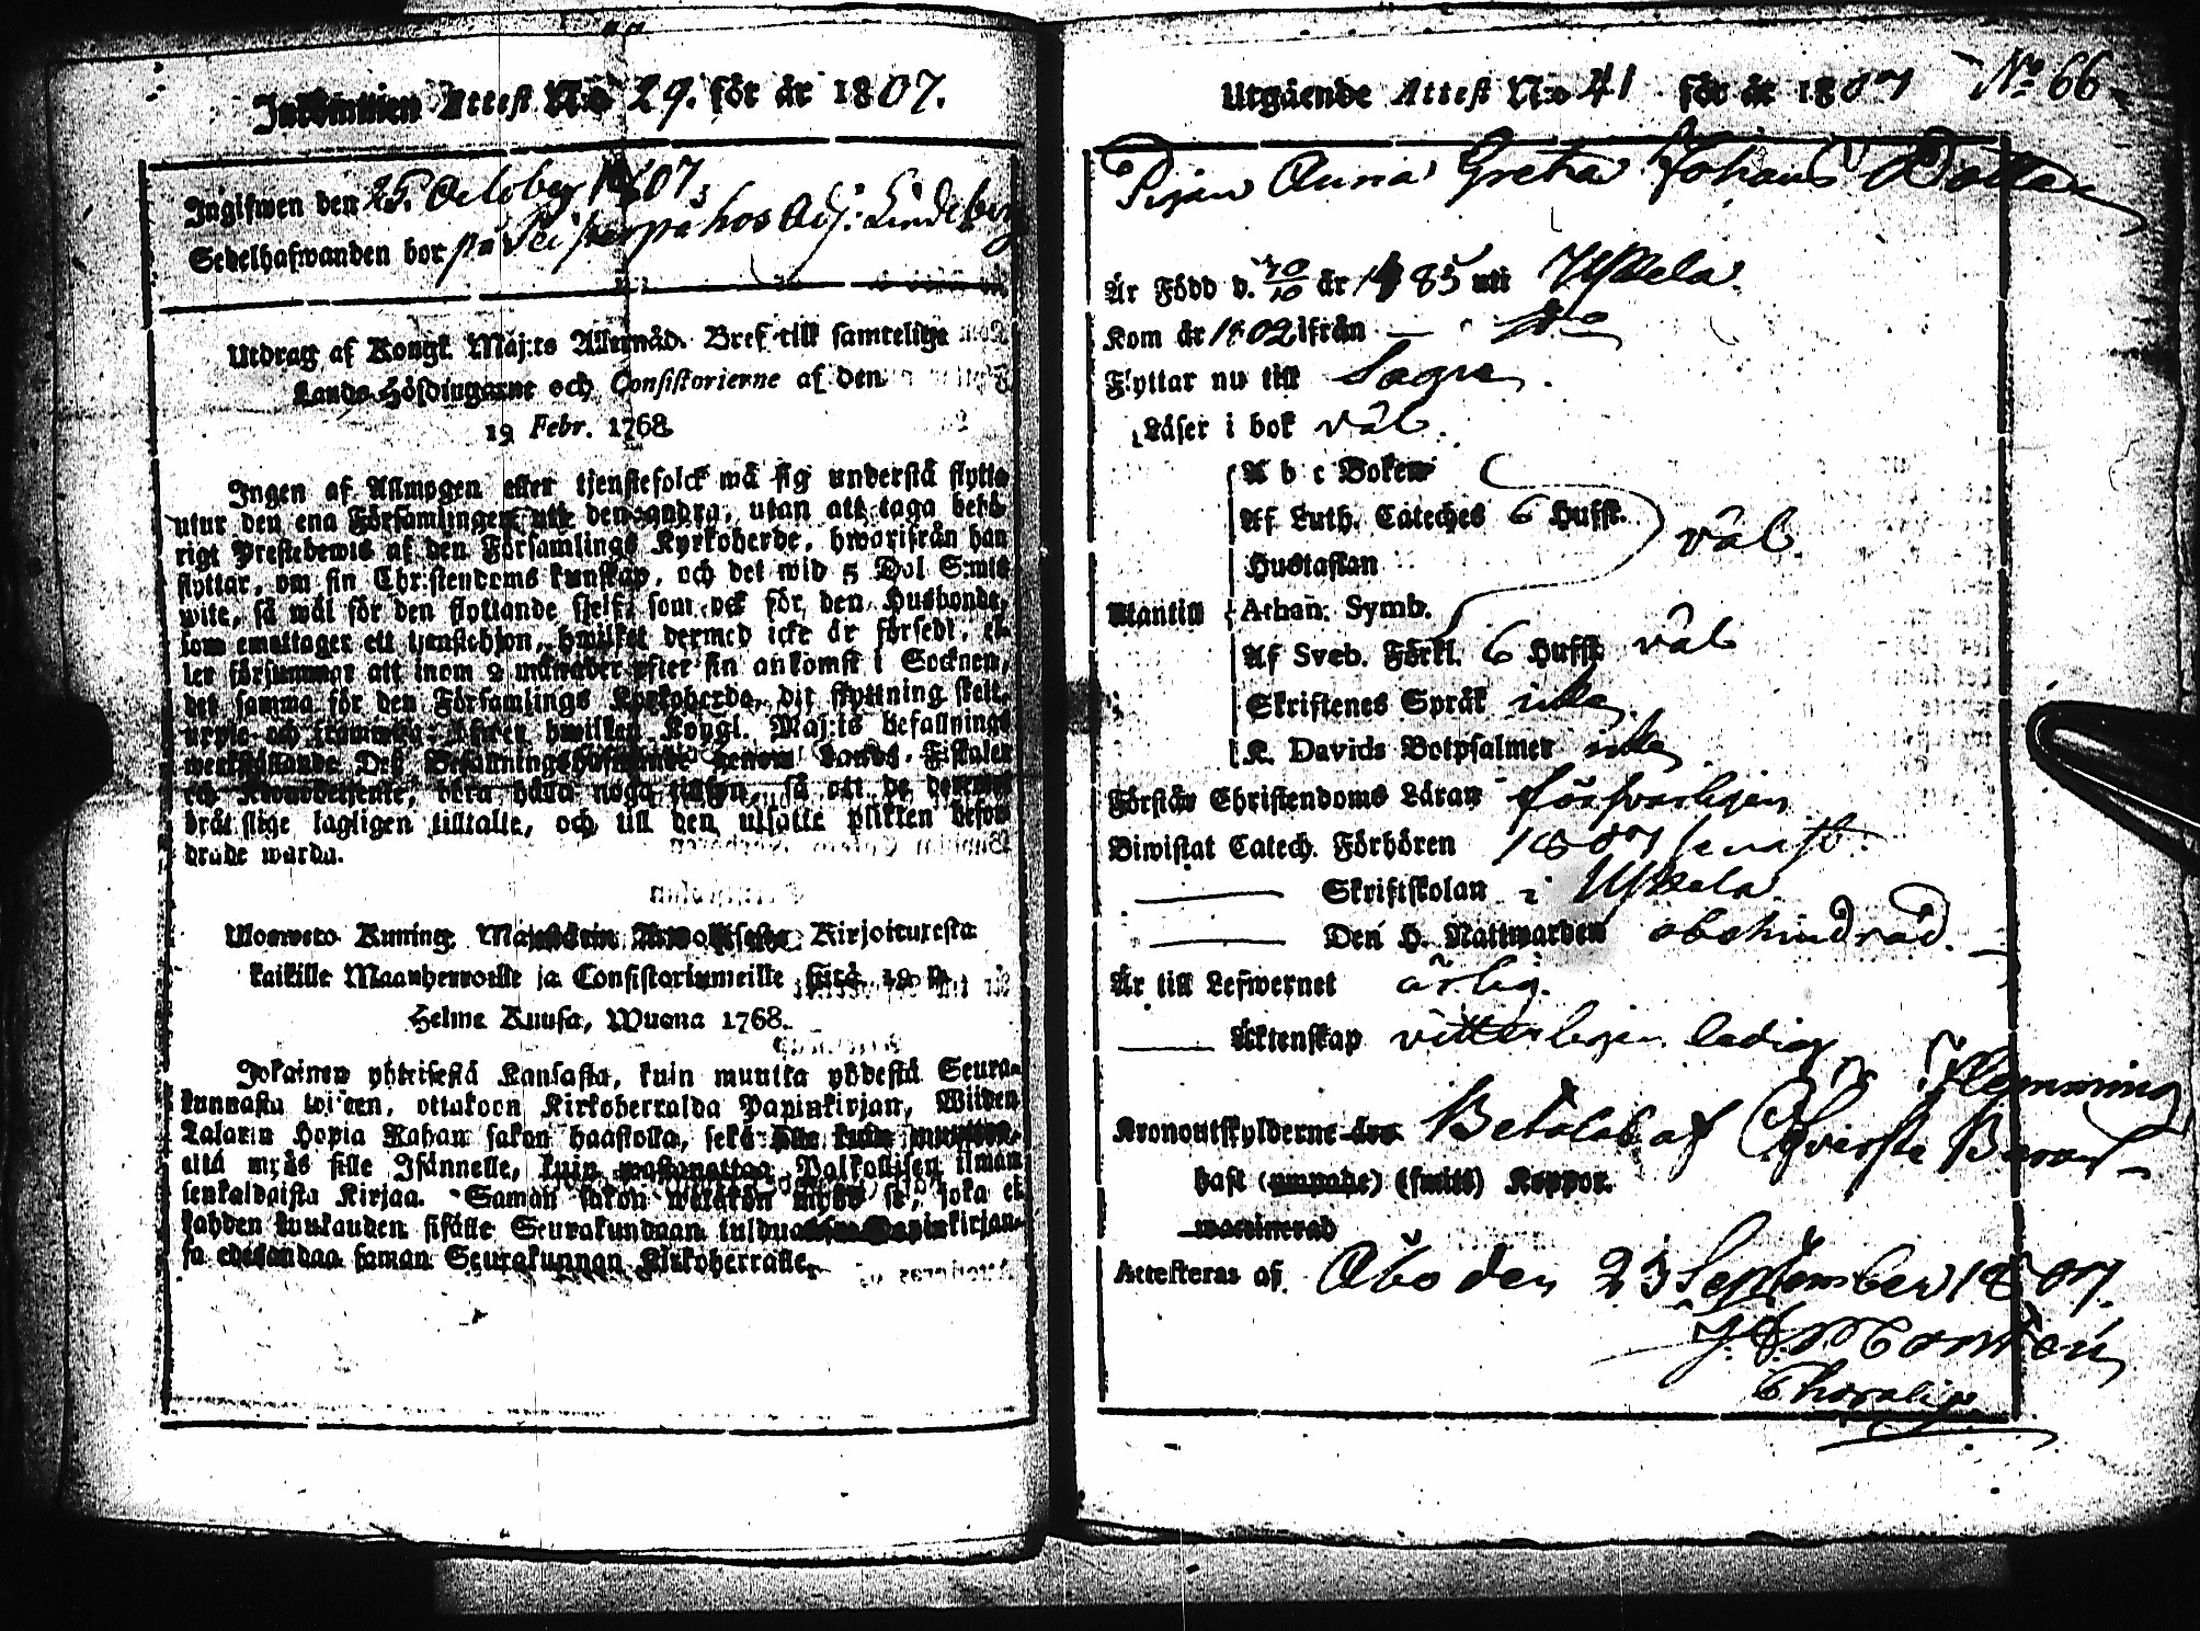 Inkommen Attest N:o 29. för år 1807.
Ingifwen den 25. October 1807,
Sedelhafwanden bor på hos Adj: Lindeberg
Utdrag af Kongl. Maj:ts Allernåd. Bref till samtelige
Lands-Höfdingarne och Consistorierne af den
19 Febr. 1768.
Ingen af Allmogen eller tjenstefolck må sig understå flytta
utur den ena Församlingen uti den andra, utan att taga behö-
rigt Prestebewis af den Församlings Kyrkoherde, hwarifrån han
flyttar, om sin Christendoms kunskap, och det wid 5 Dal S:mts
wite, så wäl för den flyttande sjelf, som ock för den Husbonde,
som emottager ett tjenstehjon, hwilket dermed icke är försedt, el-
ler försummar att inom 2 månader efter sin ankomst i Socknen,
det samma för den Församlings Kyrkoherde, dit flyttning skett,
hwilken Kongl. Maj:ts Befallnings
werkställande Dess Befallningshafwande genom Lands-Fiskaler
och Kronobetjente, böra hålla noga tilsyn, så att de
bråt slige lagligen tilltalte, och till den utsatte plikten befor
drade warda.
Uloswето Kuning. Majestetin Kirjoituxesta
kaikille Maanherroille ja Consistoriumeille siitä 19 p.
Helme Kuusa, Wuona 1768.
Jokainen yhteisestä Kansasta, kuin muutta yhdestä Seura-
kunnasta toiseen, ottakoon Kirkoherralda Papinkirjan, Wiiden
Talarin Hopia Rahan sakon haastolla, sekä
että myös sille Isännelle, kuin wastanottaa Palkollisen ilman
senkaldaista Kirjaa. Saman sakon wetäkön myös se, joka ei
kahden kuukauden sisälle Seurakundaan tulduansa Papinkirjan-
sa edesandaa saman Seurakunnan Kirkoherralle.
Utgående Attest N:o 41 för år 1807 No 66
Pigan Anna Greta Johans Dotter
År Född d. 20/10 år 1785 uti Uskela.
Kom år 1802 ifrån — do
Flyttar nu till Sagu.
Läser i bok väl.
A b c Boken
Af Luth. Cateches 6 Hufst. väl.
Hustaflan
Utantill Athan. Symb.
Af Sveb. Förkl. 6 Hufst. väl
Skriftenes Språk icke
K. Davids Botpsalmer icke
Förstår Christendoms Läran försvarligen
Biwistat Catech. Förhören 1807 senast.
Skriftskolan i Uskela.
Den H. Nattwarden obehindrad.
Är till Lefwernet ärlig.
Äktenskap vitterligen ledig
Flemming
Kronoutskylderne Betalas af Öfverste Baron
haft (ympade) (smitt) Koppor.
waccinerad
Attesteras af. Åbo den 23 September 1807.